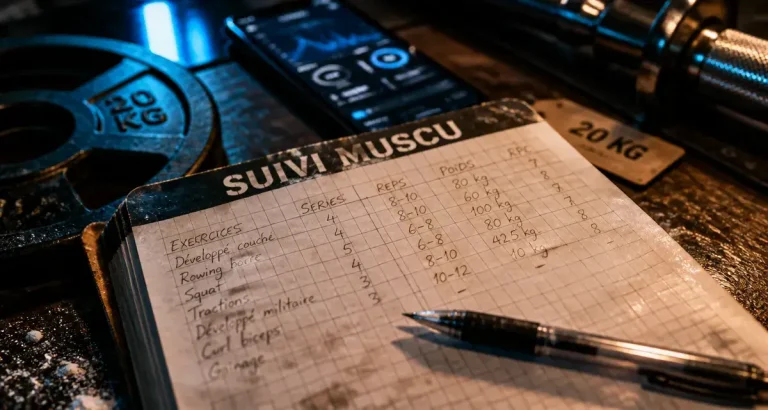 SUIVI MUSCU
EXERCICES SERIES REPS POIDS
Développé couché 4 8-10 80 kg 7
Rowing 4 8-10 60 kg 8
Squat 5 6-8 100 kg
Tractions 4 6-8 80 kg 7
Développé militaire 3 8-10 42.5 kg 8
Curl biceps 3 10-12 10 kg 8
Gainage - -
20 KG